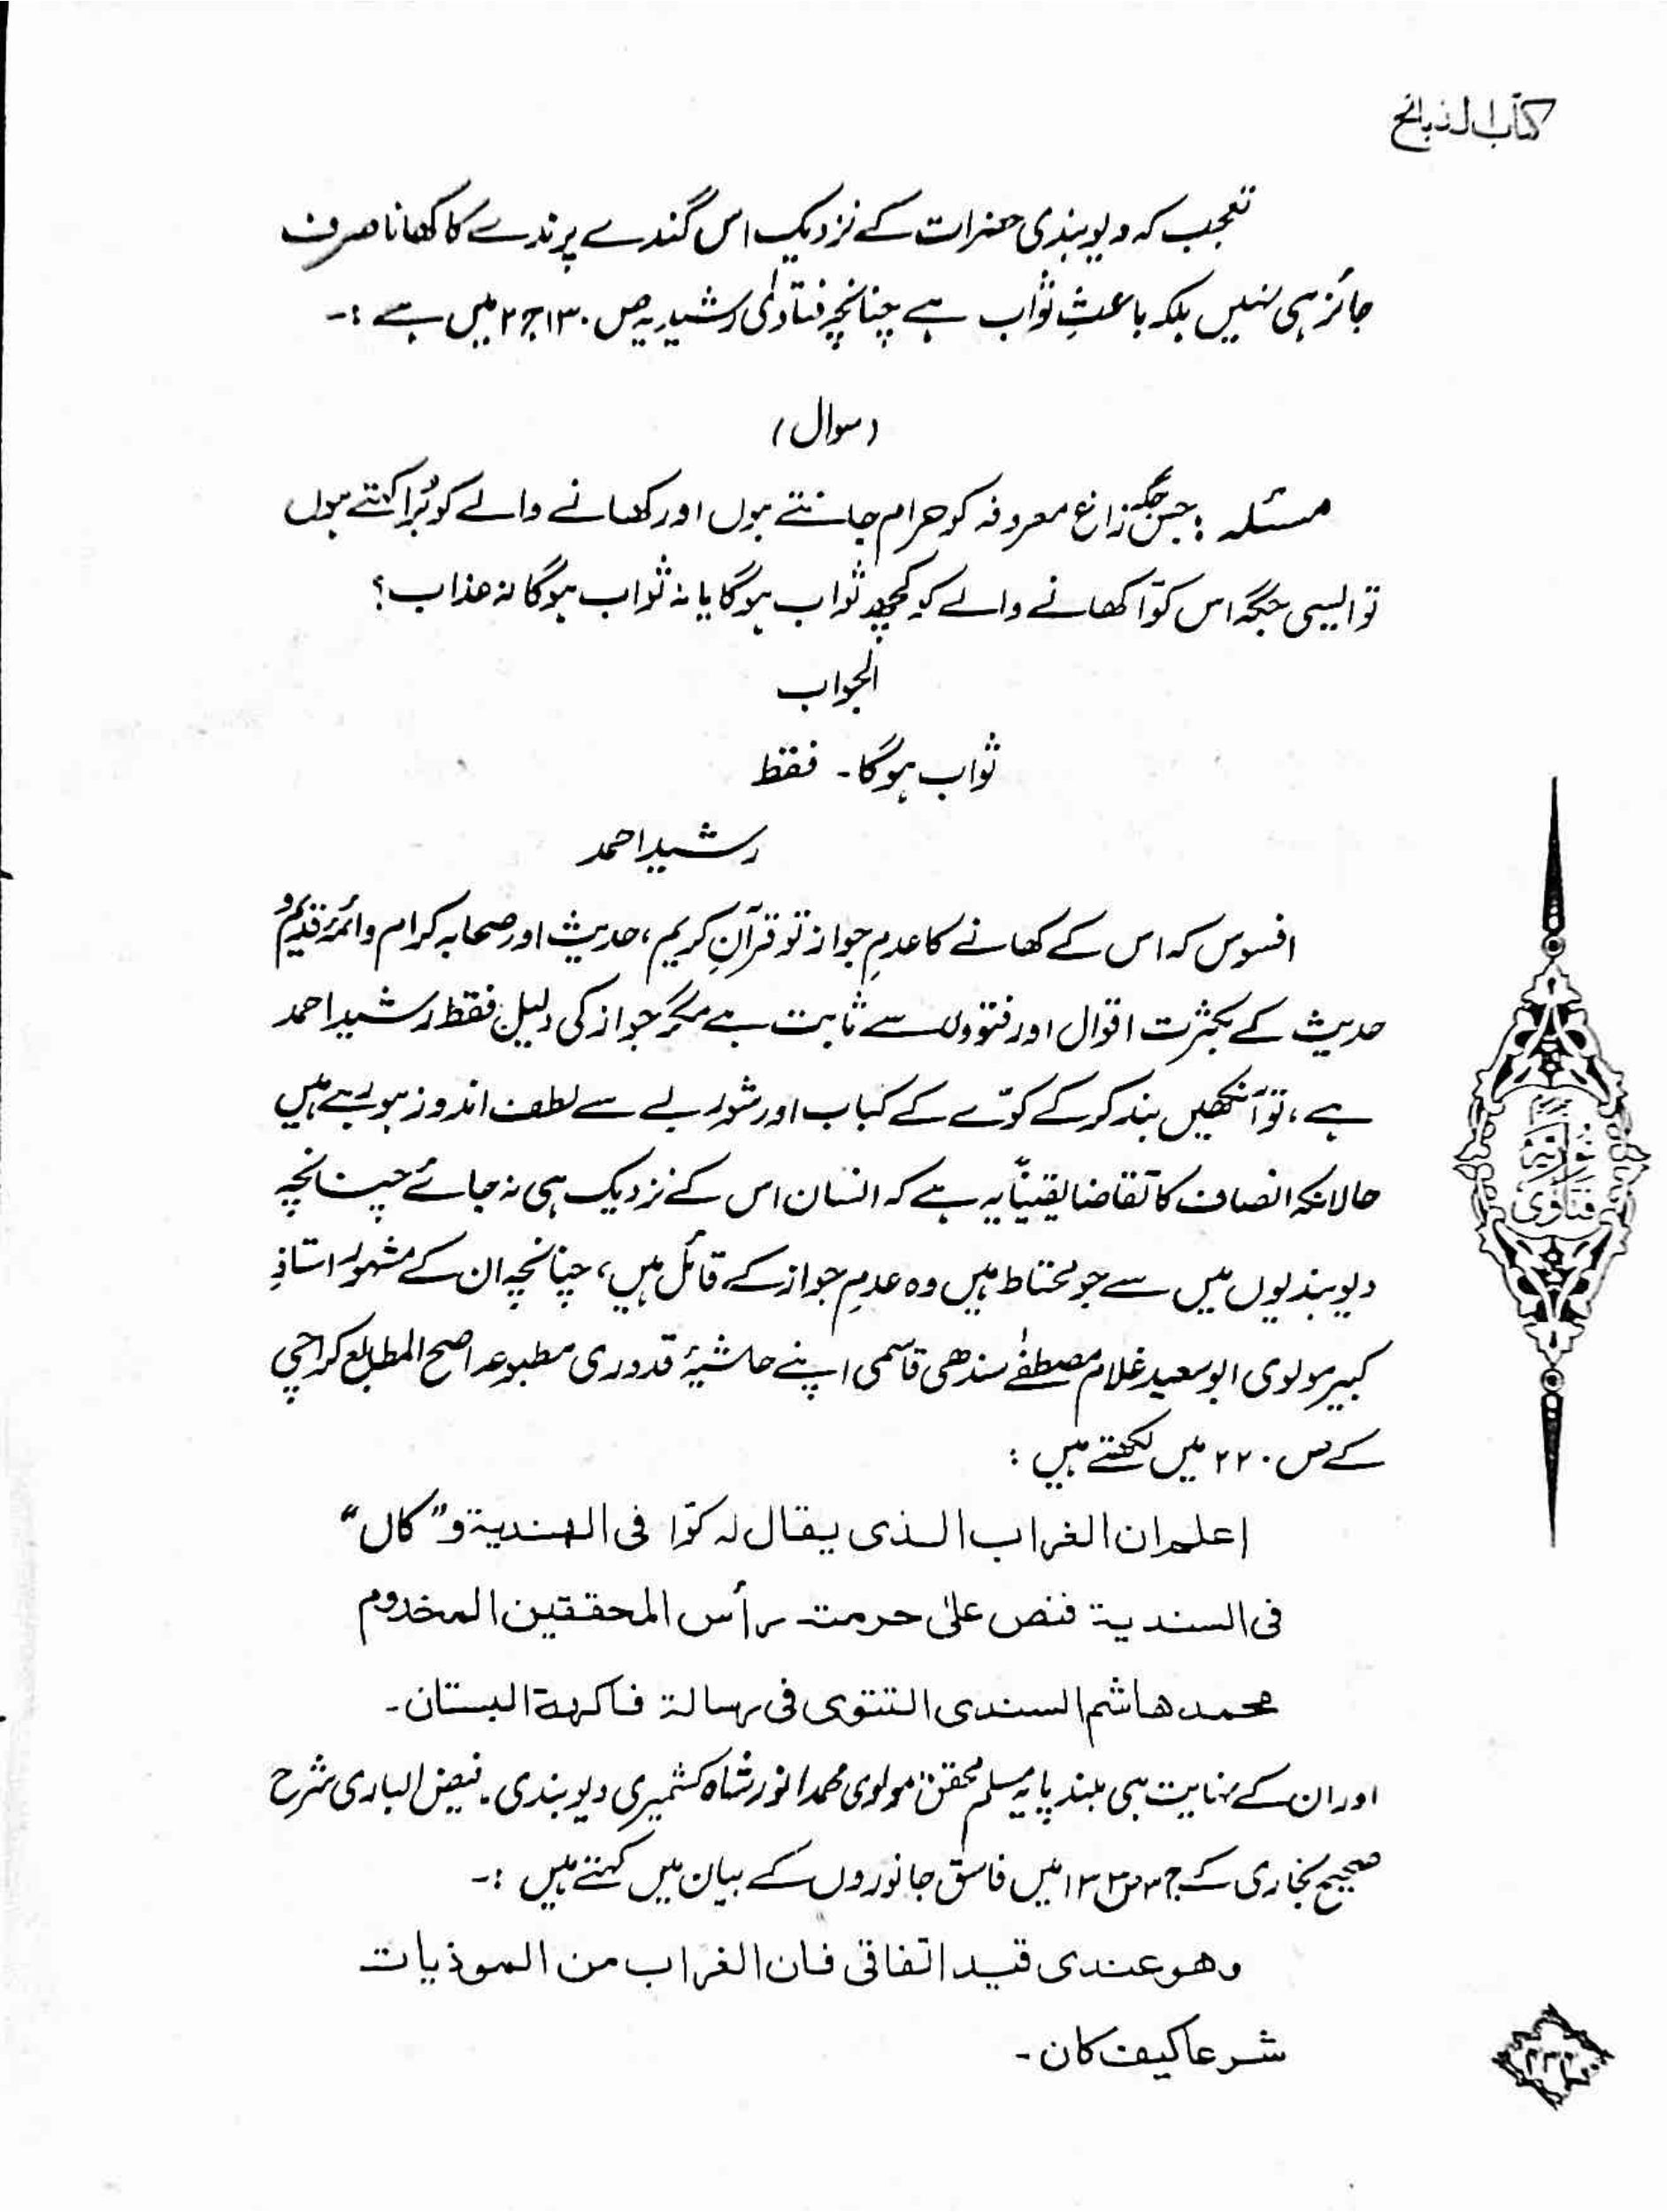 کتاب الذبائح
تعجب کہ دیوبندی حضرات کے نزدیک اس گندے پرندے کا کھانا صرف
جائز ہی نہیں بلکہ باعثِ ثواب ہے چنانچہ فتاوٰی رشیدیہ ص ۱۳۰ ج ۲ میں ہے :-
(سوال)
مسئلہ : جس جگہ زاغ معروفہ کو حرام جانتے ہوں اور کھانے والے کو بُرا کہتے ہوں
تو ایسی جگہ اس کوّا کھانے والے کو کچھ ثواب ہوگا یا نہ ثواب ہوگا نہ عذاب؟
الجواب
ثواب ہوگا۔ فقط
رشید احمد
افسوس کہ اس کے کھانے کا عدمِ جواز تو قرآنِ کریم، حدیث اور صحابہ کرام و ائمۂ قدیم و
حدیث کے بکثرت اقوال اور فتووں سے ثابت ہے مگر جواز کی دلیل فقط رشید احمد
ہے، تو آنکھیں بند کر کے کوّے کے کباب اور شوربے سے لطف اندوز ہو رہے ہیں
حالانکہ انصاف کا تقاضا یقیناً یہ ہے کہ انسان اس کے نزدیک ہی نہ جائے چنانچہ
دیوبندیوں میں سے جو محتاط ہیں وہ عدمِ جواز کے قائل ہیں، چنانچہ ان کے مشہور استاذِ
کبیر مولوی ابو سعید غلام مصطفٰے سندھی قاسمی اپنے حاشیۂ قدوری مطبوعہ اصح المطابع کراچی
کے ص ۲۲۰ میں لکھتے ہیں :
اعلم ان الغراب الذی یقال لہ کوّا فی الہندیۃ و "کاں"
فی السندیۃ فنص علیٰ حرمتہ رأس المحققین المخدوم
محمد ھاشم السندی التتوی فی رسالۃ فاکہۃ البستان۔
اور ان کے نہایت ہی بلند پایہ مسلم محقق مولوی محمد انور شاہ کشمیری دیوبندی۔ فیض الباری شرح
صحیح بخاری کے ج ۳ ص ۱۳۲ میں فاسق جانوروں کے بیان میں کہتے ہیں :-
وھو عندی قید اتفاقی فان الغراب من الموذیات
شرعا کیف کان۔
فتاوٰی
نوریہ
۴۳۲